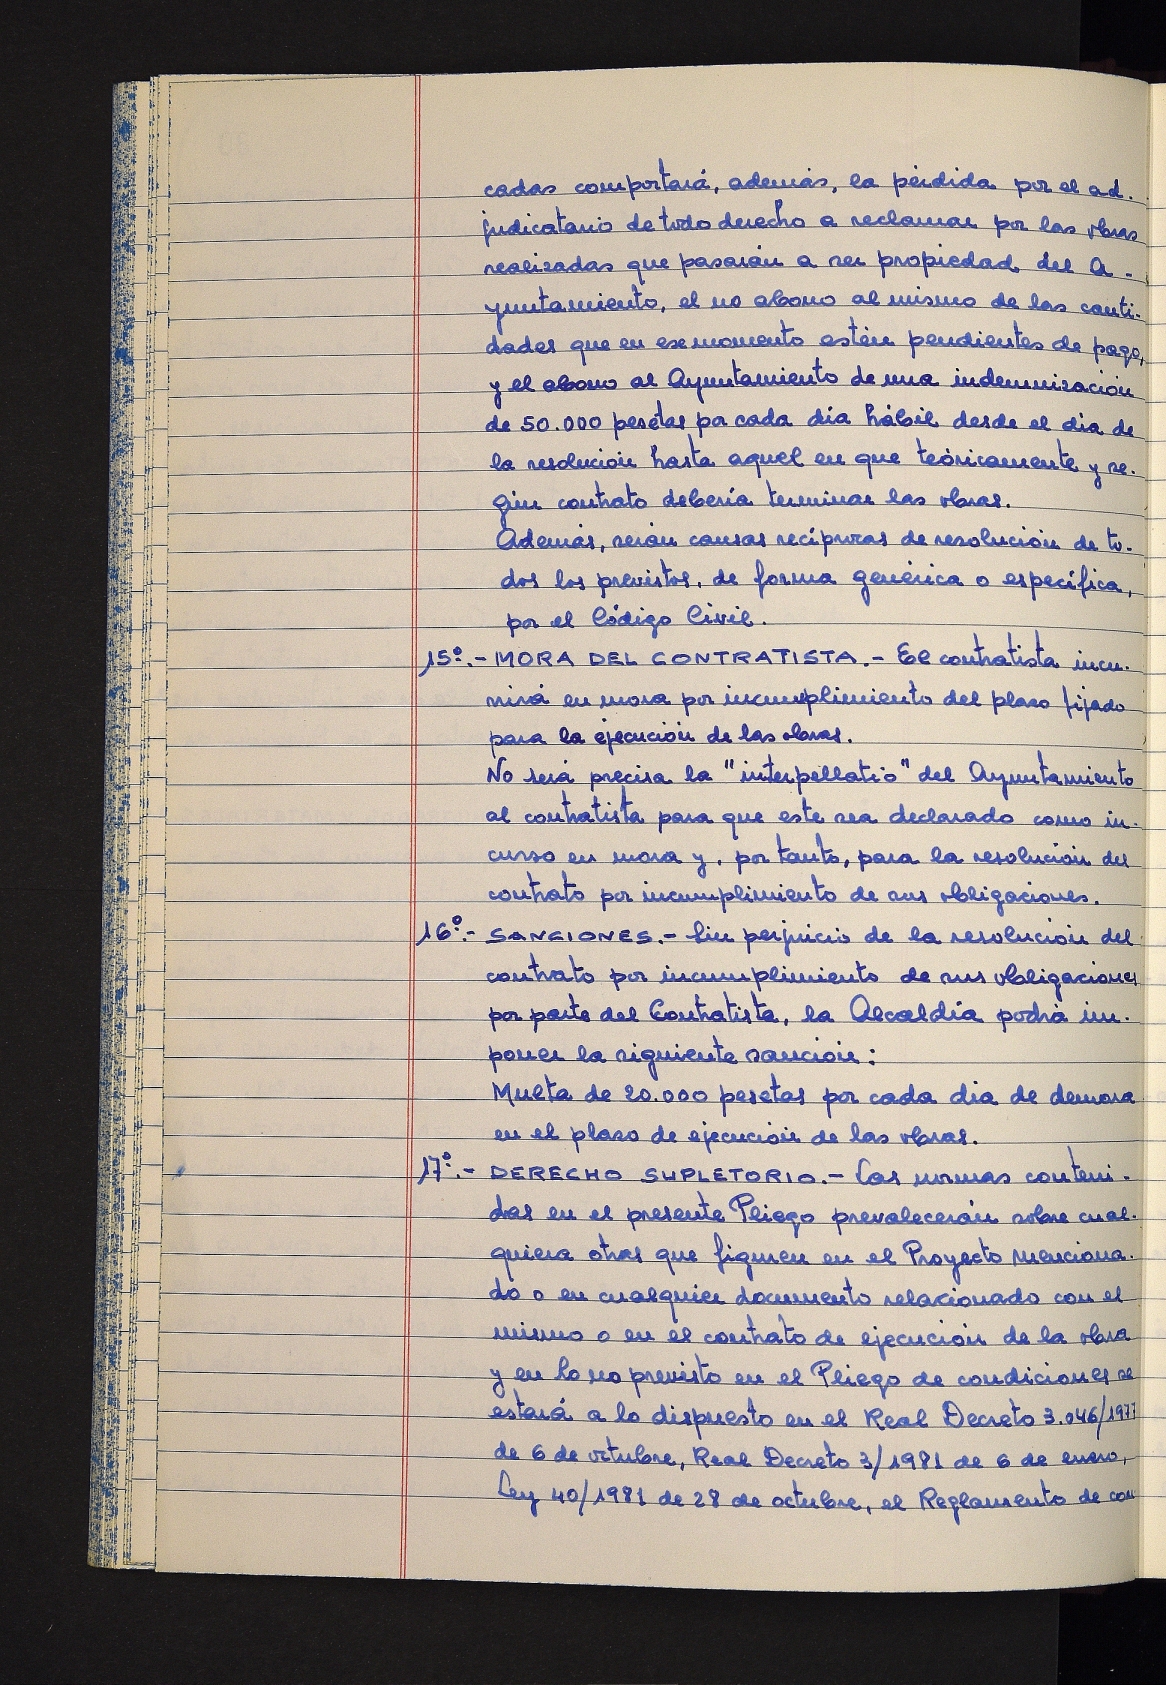 cadas comportará, además, la pérdida por el ad-
judicatario de todo derecho a reclamar por las obras
realizadas que pasarán a ser propiedad del A-
yuntamiento, el no abono al mismo de las canti-
dades que en ese momento estén pendientes de pago,
y el abono al Ayuntamiento de una indemnización
de 50.000 pesetas por cada día hábil desde el día de
la resolución hasta aquel en que teóricamente y se-
gún contrato debería terminar las obras.
Además, serán causas recíprocas de resolución de to-
dos los previstos, de forma genérica o específica,
por el Código Civil.
15º.- MORA DEL CONTRATISTA.- El contratista incu-
rrirá en mora por incumplimiento del plazo fijado
para la ejecución de las obras.
No será precisa la "interpellatio" del Ayuntamiento
al contratista para que este sea declarado como in-
curso en mora y, por tanto, para la resolución del
contrato por incumplimiento de sus obligaciones.
16º.- SANCIONES.- Sin perjuicio de la resolución del
contrato por incumplimiento de sus obligaciones
por parte del Contratista, la Alcaldía podrá im-
poner la siguiente sanción:
Multa de 20.000 pesetas por cada día de demora
en el plazo de ejecución de las obras.
17º.- DERECHO SUPLETORIO.- Las normas conteni-
das en el presente Pliego prevalecerán sobre cual-
quiera otras que figuren en el Proyecto menciona-
do o en cualquier documento relacionado con el
mismo o en el contrato de ejecución de la obra
y en lo no previsto en el Pliego de condiciones se
estará a lo dispuesto en el Real Decreto 3.046/1977
de 6 de octubre, Real Decreto 3/1981 de 6 de enero,
Ley 40/1981 de 28 de octubre, el Reglamento de con